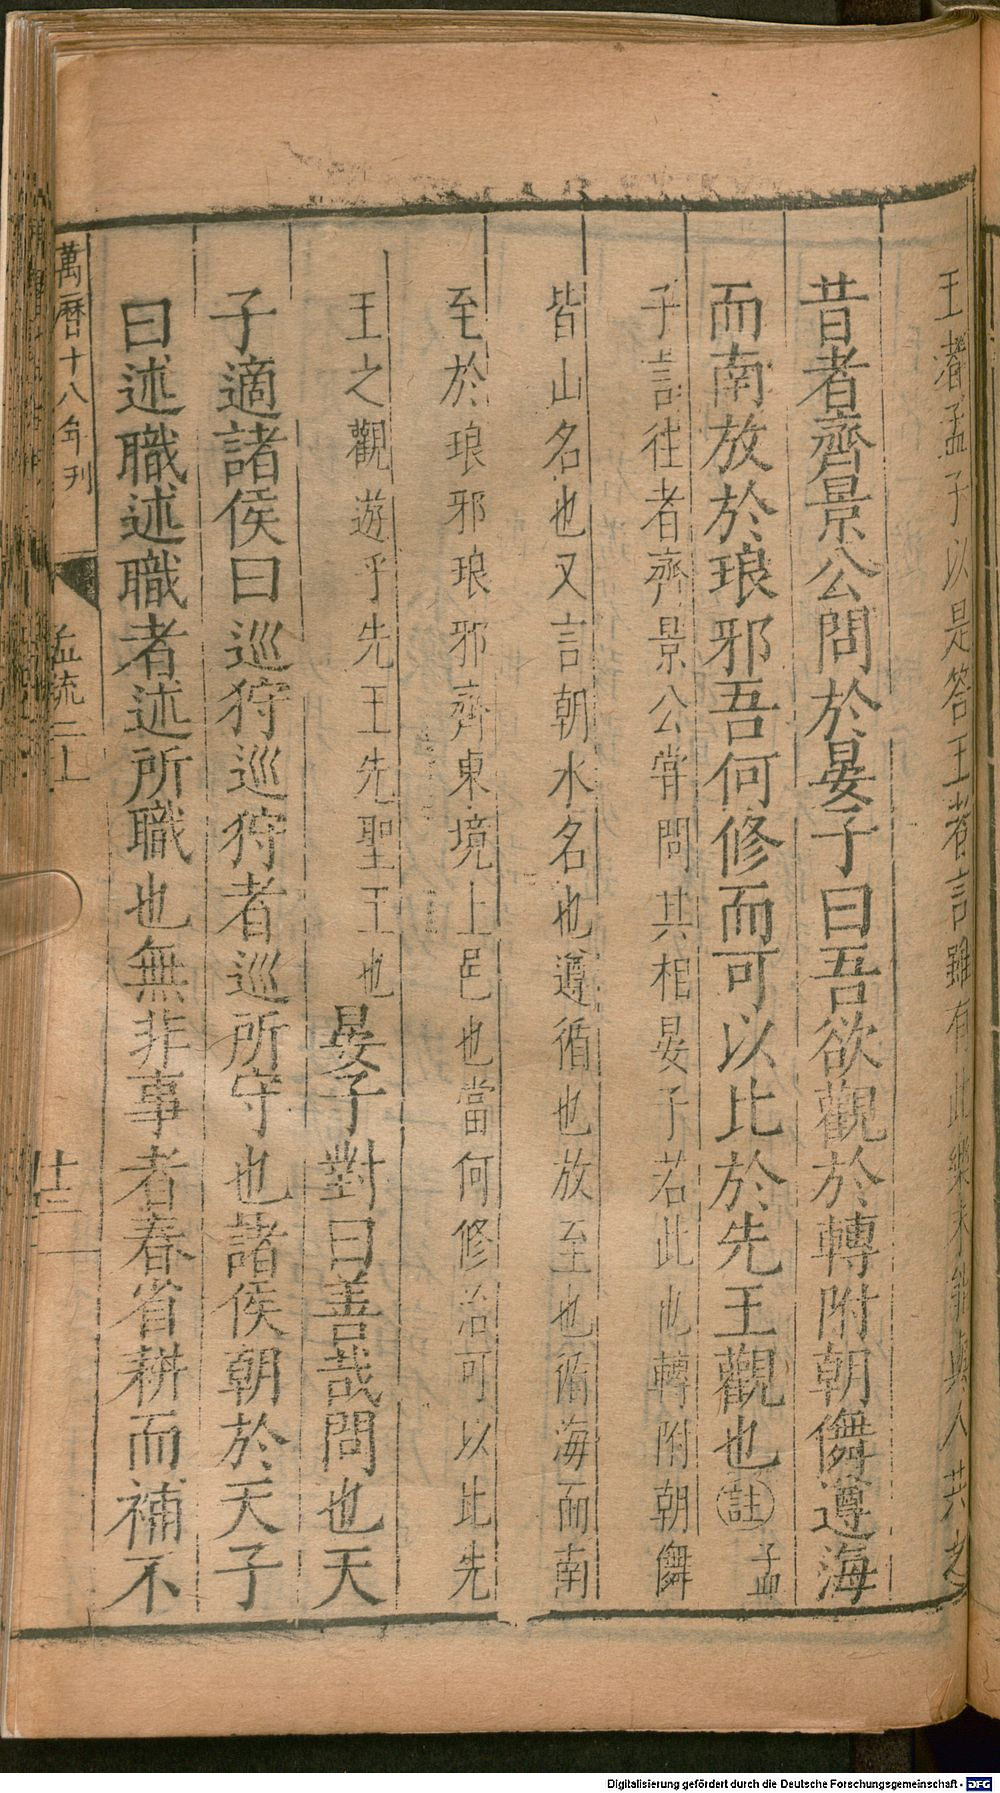 王者孟子以是答王者言雖有此樂未能與人共之
昔者齊景公問於晏子曰吾欲觀於轉附朝儛遵海
而南放於琅邪吾何修而可以比於先王觀也註孟
子言往者齊景公嘗問其相晏子若此也轉附朝儛
皆山名也又言朝水名也遵循也放至也循海而南
至於琅邪琅邪齊東境上邑也當何修治可以比先
王之觀遊乎先王先聖王也晏子對曰善哉問也天
子適諸侯曰巡狩巡狩者巡所守也諸侯朝於天子
曰述職述職者述所職也無非事者春省耕而補不
萬曆十八年刊
孟疏二上
廿三
Digitalisierung gefördert durch die Deutsche Forschungsgemeinschaft - DFG